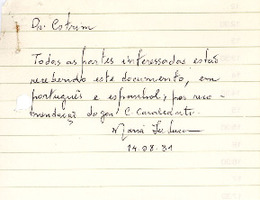 Dr. Cotrim
Todas as partes interessadas estão
recebendo este documento, em
português e espanhol, por reco-
mendação do gen. C. Cavalcanti.
14.08.81